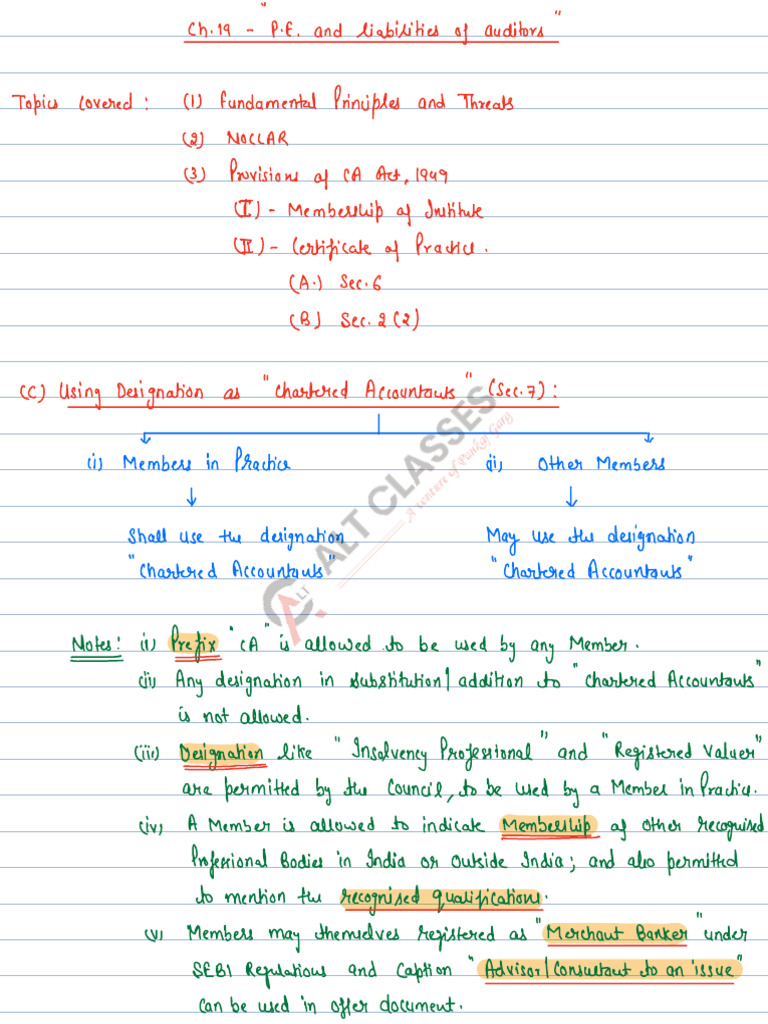 Ch.19 - "P.E. and liabilities of auditors"
Topics covered : (1) Fundamental Principles and Threats
(2) NOCLAR
(3) Provisions of CA Act, 1949
(I) - Membership of Institute
(II) - Certificate of Practice.
(A.) Sec. 6
(B) Sec. 2(2)
(C) Using Designation as "Chartered Accountants" (Sec. 7) :
(i) Members in Practice
(ii) Other Members
Shall use the designation
"Chartered Accountants"
May use the designation
"Chartered Accountants"
ALT CLASSES
A venture of Pankaj Garg
ALT
Notes: (i) Prefix "CA" is allowed to be used by any Member.
(ii) Any designation in substitution/ addition to "Chartered Accountants"
is not allowed.
(iii) Designation like "Insolvency Professional" and "Registered Valuer"
are permitted by the Council, to be used by a Member in Practice.
(iv) A Member is allowed to indicate Membership of other recognised
Professional Bodies in India or outside India; and also permitted
to mention the recognised qualifications.
(v) Members may themselves registered as "Merchant Banker" under
SEBI Regulations and Caption "Advisor/Consultant to an issue"
can be used in offer document.